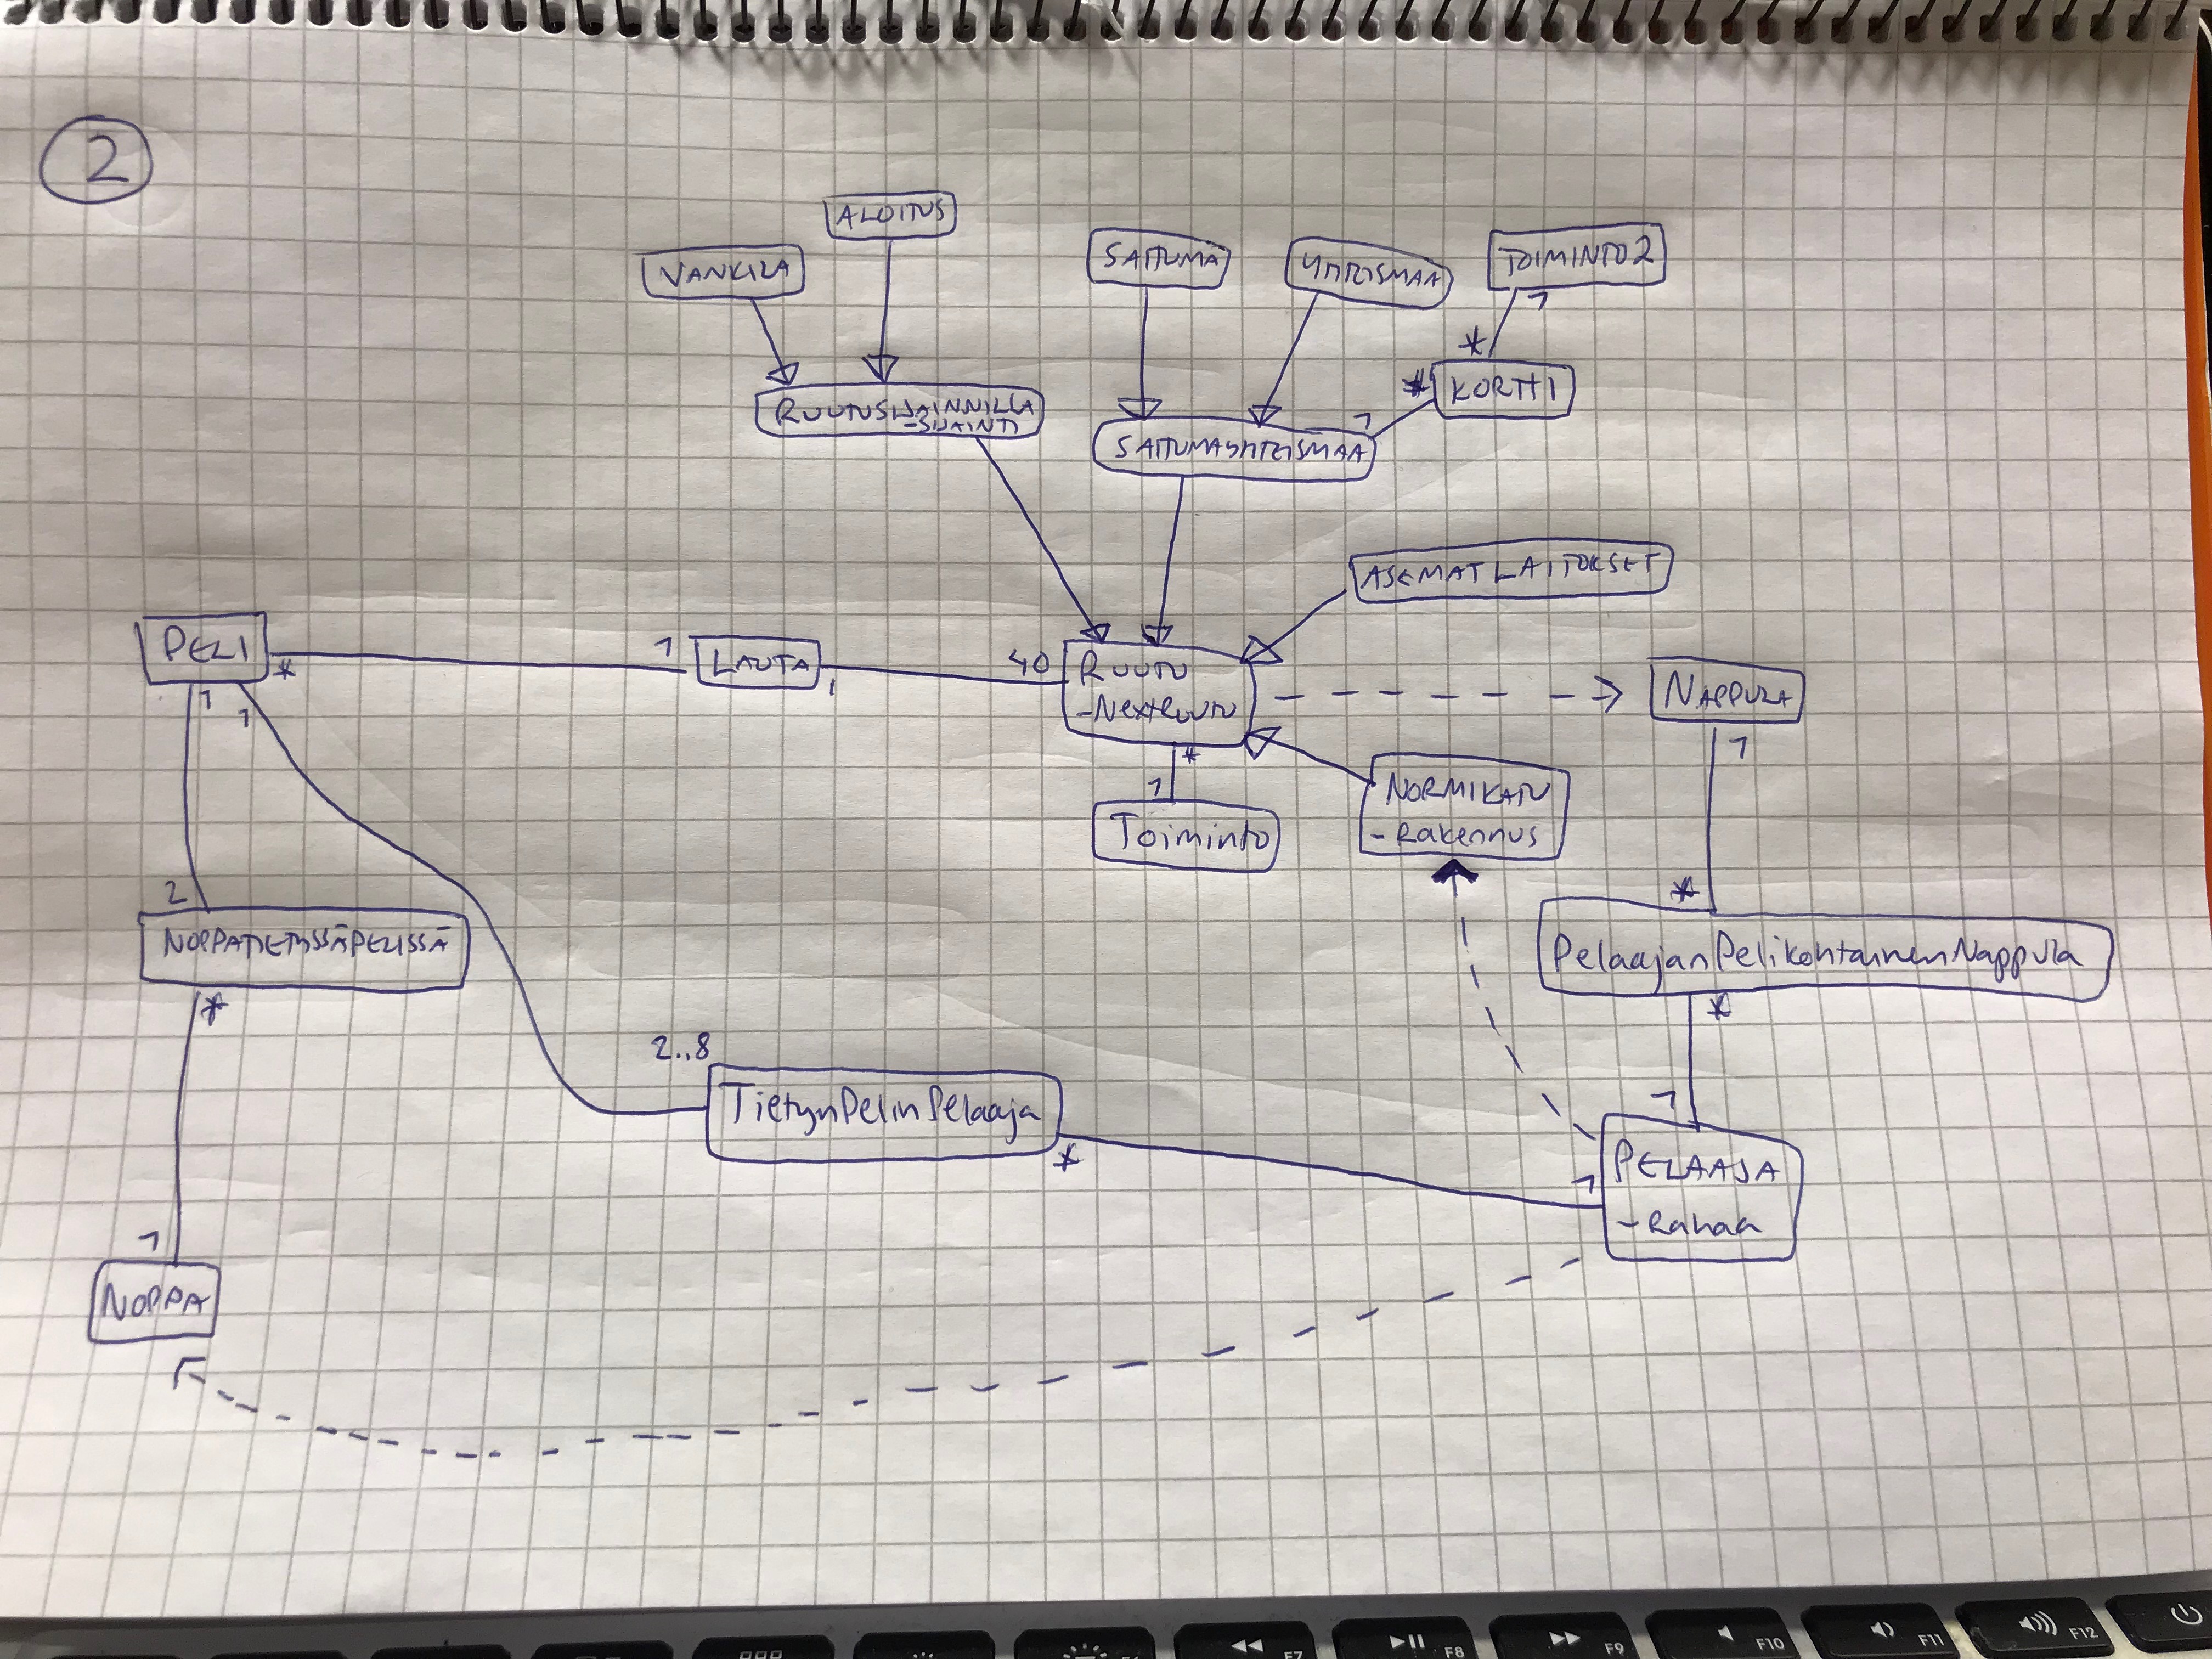 2
ALOITUS
VANKILA
SATTUMA
YHTEISMAA
TOIMINTO2
1
*
RUUTUSIJAINNILLA
-SIJAINTI
*
KORTTI
1
SATTUMAYHTEISMAA
ASEMATLAITOKSET
PELI
*
1
LAUTA
1
40
RUUTU
-NextRuutu
NAPPULA
1
1
1
*
1
Toiminto
NORMIKATU
-Rakennus
2
NOPPATIETYSSÄPELISSÄ
*
*
PelaajanPelikohtainenNappula
*
2..8
TietynPelinPelaaja
*
1
1
PELAAJA
-Rahaa
1
NOPPA
F7
F8
F9
F10
F11
F12